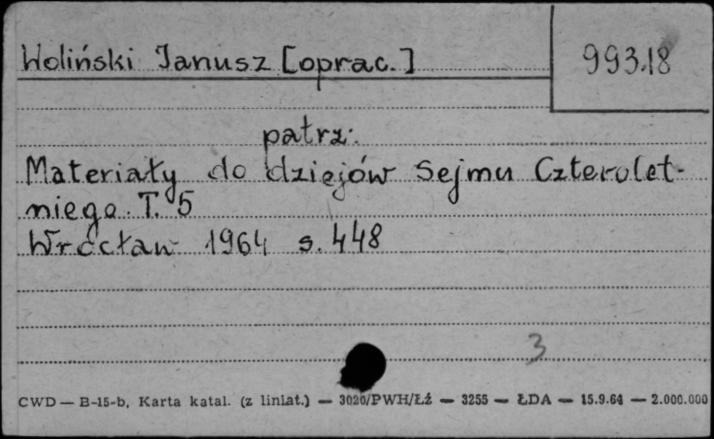 Woliński Janusz [oprac.]
99318
patrz:
Materiały do dziejów Sejmu Czterolet-
niego. T. 5
Wrocław 1964 s. 448
3
CWD — B-15-b, Karta katal. (z liniat.) — 3020/PWH/Łź — 3255 — ŁDA — 15.9.64 — 2.000.000